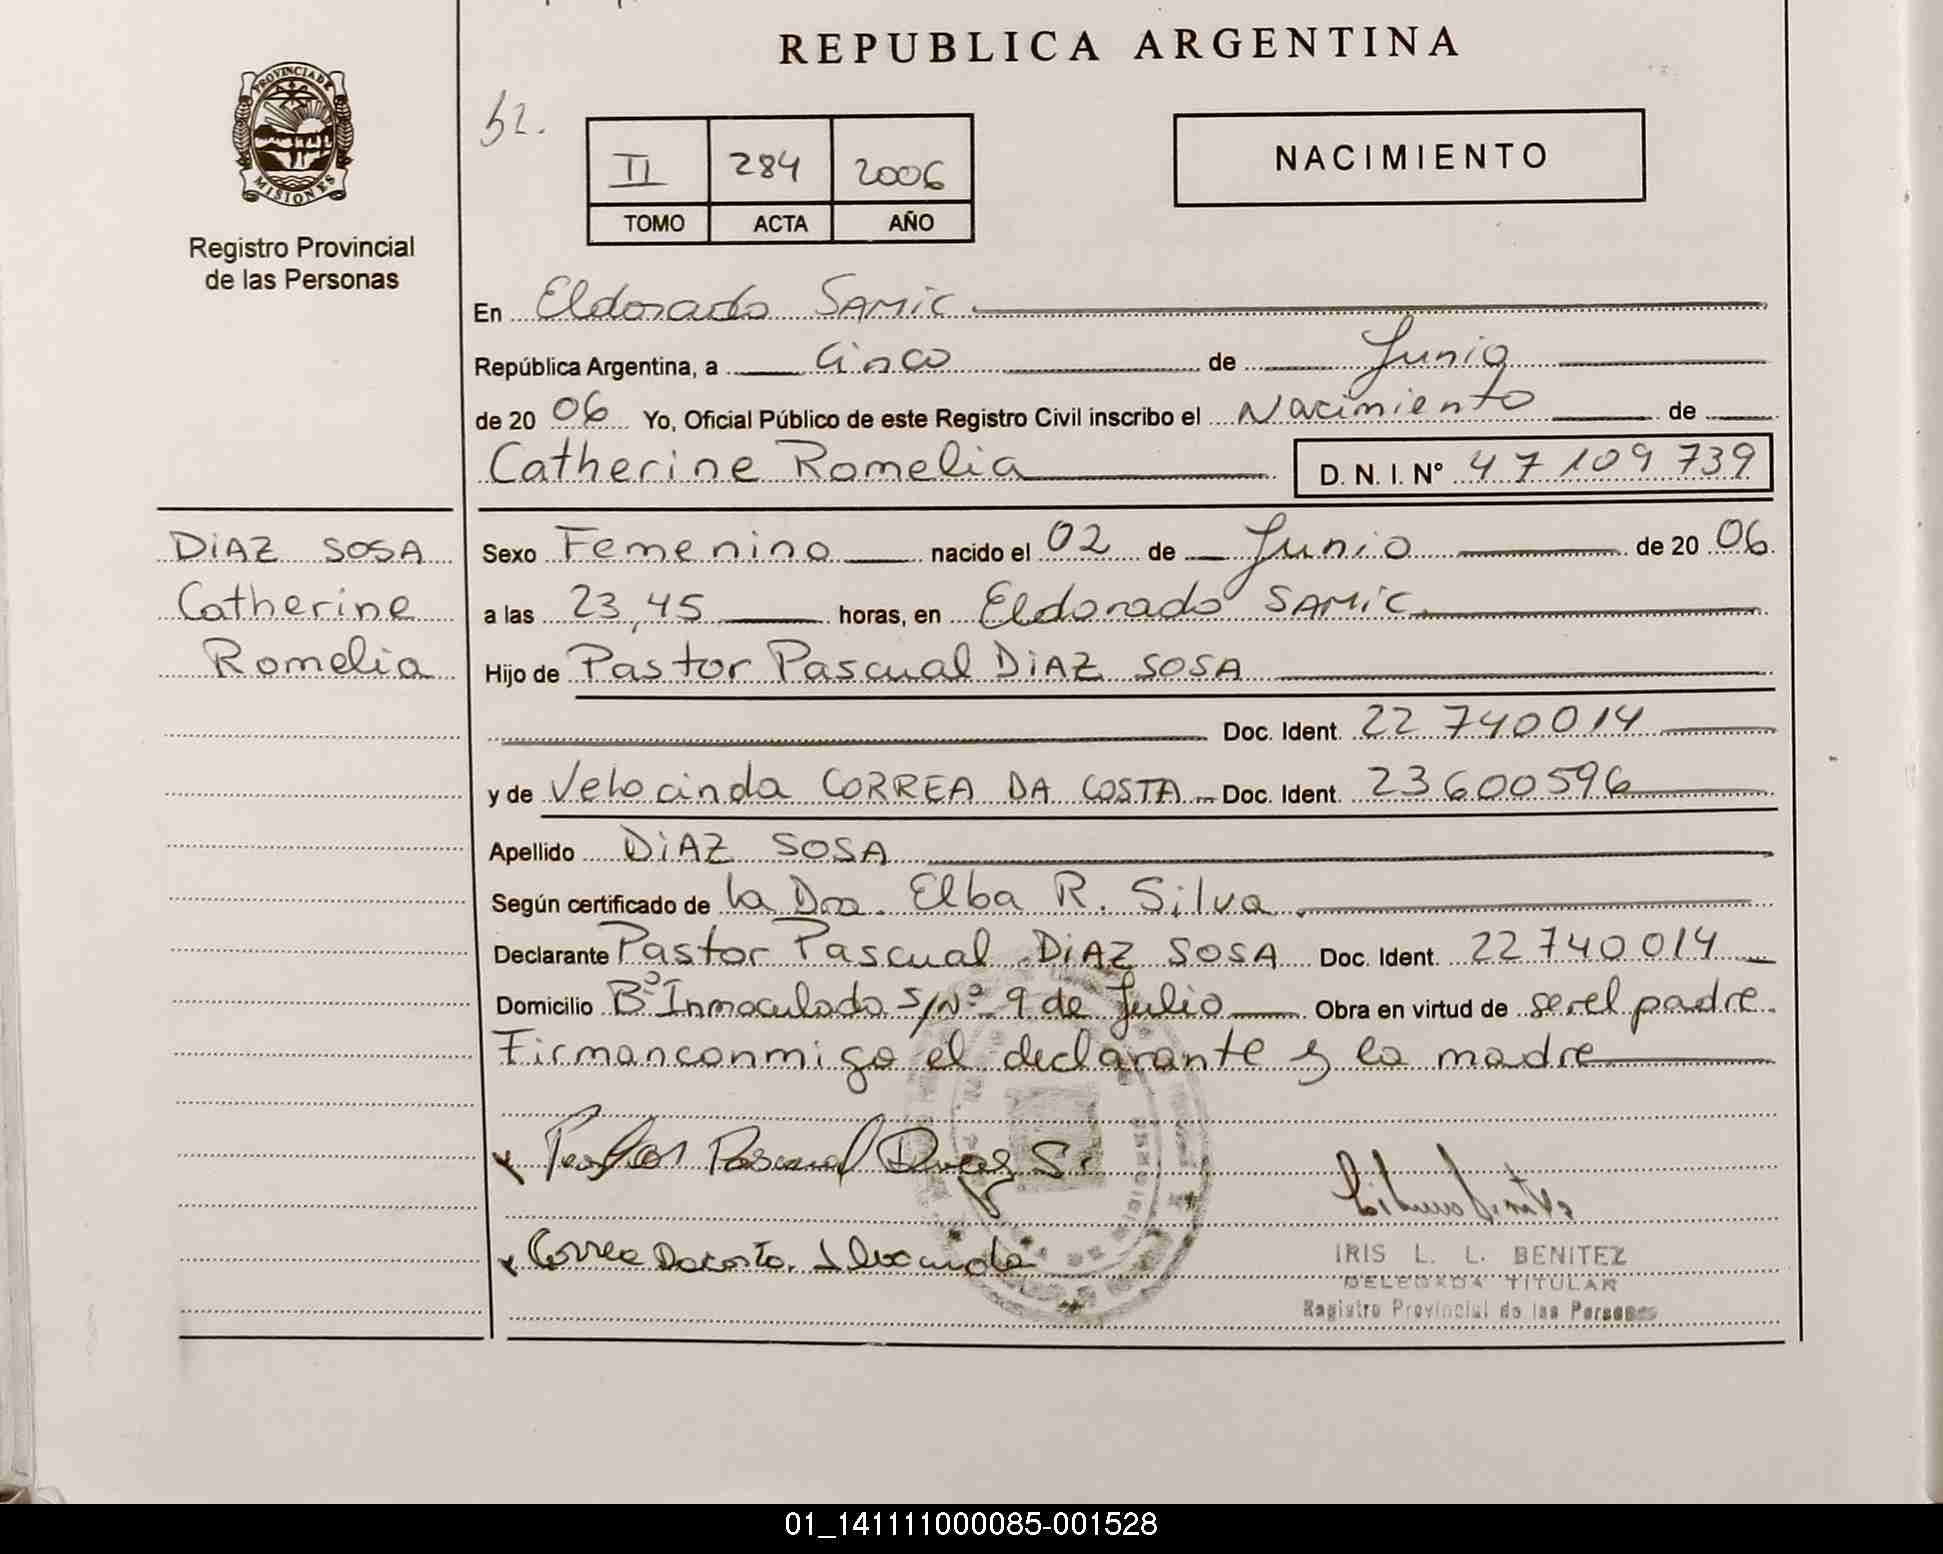 REPUBLICA ARGENTINA
PROVINCIA DE
MISIONES
Registro Provincial
de las Personas
52.
II 284 2006
TOMO ACTA AÑO
NACIMIENTO
En Eldorado SAMIC
República Argentina, a Cinco de Junio
de 20 06 Yo, Oficial Público de este Registro Civil inscribo el Nacimiento de
Catherine Romelia D. N. I. Nº 47 109 739
DIAZ SOSA
Catherine
Romelia
Sexo Femenino nacido el 02 de Junio de 20 06
a las 23,45 horas, en Eldorado SAMIC
Hijo de Pastor Pascual DIAZ SOSA
Doc. Ident. 22 740014
y de Velocinda CORREA DA COSTA Doc. Ident. 23600596
Apellido DIAZ SOSA
Según certificado de la Dra. Elba R. Silva
Declarante Pastor Pascual DIAZ SOSA Doc. Ident. 22 740 014
Domicilio Bº Inmaculada S/Nº 9 de Julio Obra en virtud de ser el padre
Firman conmigo el declarante y la madre
Pascual
Correa Dacosta
IRIS L. L. BENITEZ
DELEGADA TITULAR
Registro Provincial de las Personas
01_141111000085-001528